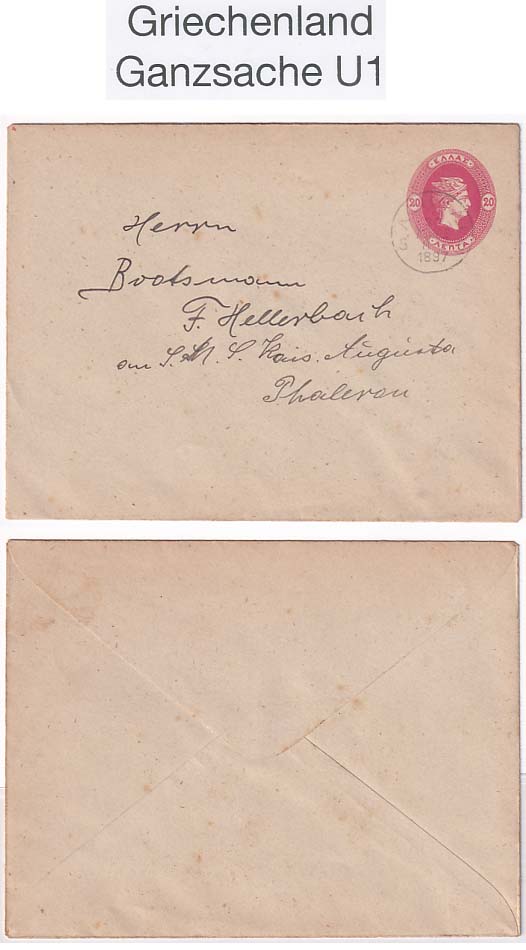 Griechenland
Ganzsache U1
ΕΛΛΑΣ
20 20
ΛΕΠΤΑ
1897
Herrn
Bootsmann
F. Hellerbach
an S. M. S. Kais. Augusta
Phaleron